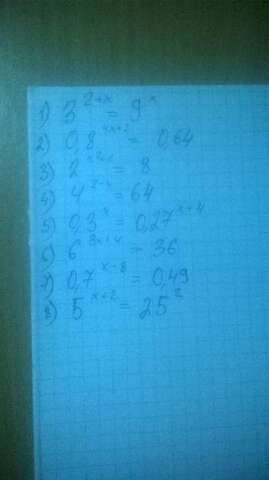 1) 3^{2+x} = 9^x
2) 0,8^{4x+2} = 0,64
3) 2^{x+1} = 8
4) 4^{2-x} = 64
5) 0,3^x = 0,27^{x+4}
6) 6^{3x+4} = 36
7) 0,7^{x-8} = 0,49
8) 5^{x+2} = 25^2